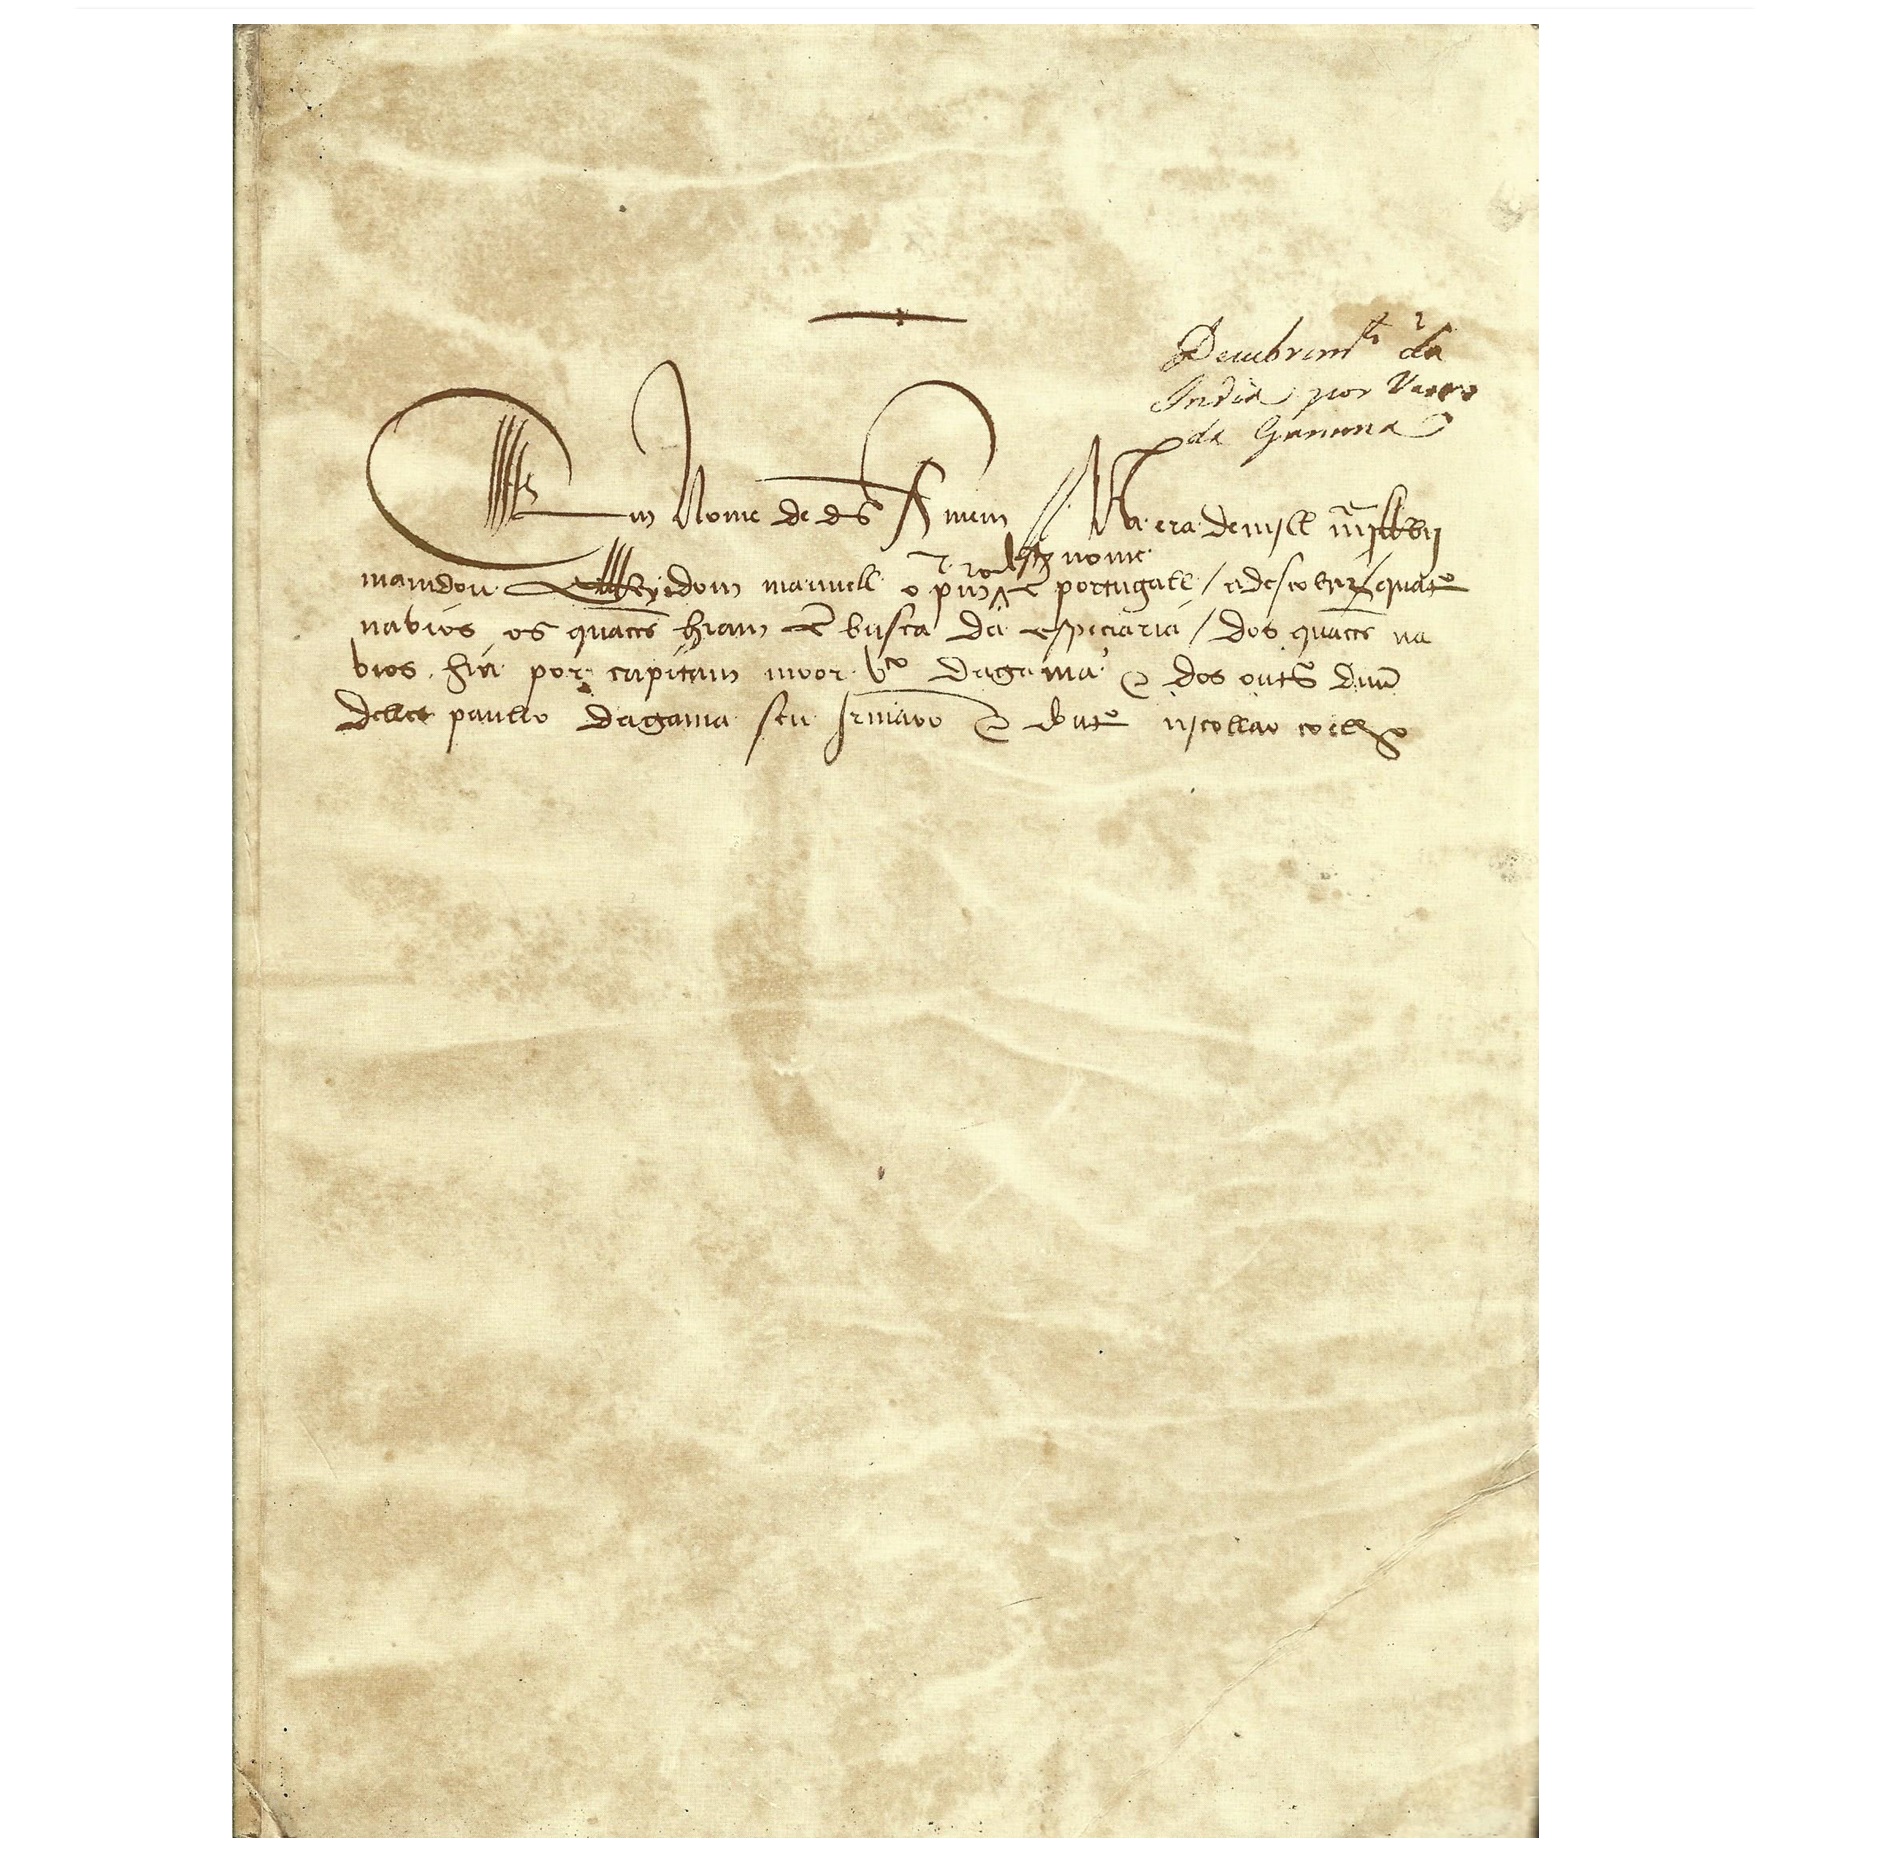 Descubrimto da
India por Vasco
da Gamma
Em Nome de ds Amem // Na era de mjll iiijlRvij
mamdou Ell Rey dom manuell o prim.ro deste nome em portugall / a descobrir / quatro
navios os quaees hiam em busca da especiaria / dos quaees na
vios hia por capitam moor Vco dagama e dos outros duum
delles paullo dagama seu Jrmaoo e doutro njcollao coelho